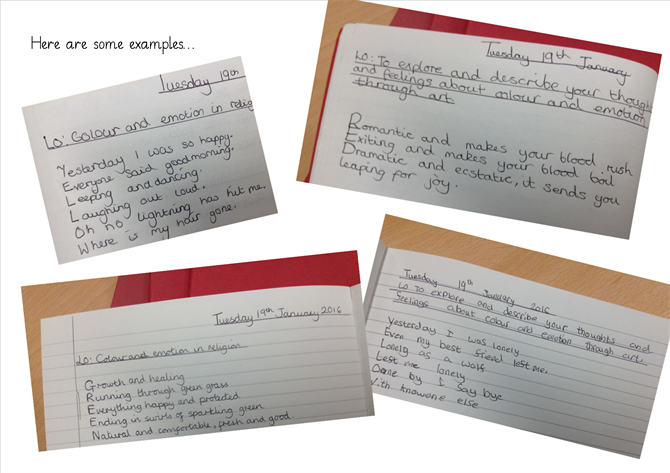 Here are some examples...
Tuesday 19th
Lo: Colour and emotion in relig
Yesterday I was so happy.
Everyone said goodmorning.
Leeping and dancing.
Laughing out loud.
Oh no lightning has hit me.
Where is my hair gone.
Tuesday 19th January
LO: To explore and describe your though
and feelings about colour and emotion
through art
Romantic and makes your blood rush
Exiting and makes your blood boil
Dramatic and ecstatic, it sends you
leaping for joy.
Tuesday 19th January 2016
Lo: Colour and emotion in religion
Growth and healing
Running through green grass
Everything happy and protected
Ending in swirls of sparkling green
Natural and comfortable, fresh and good.
Tuesday 19th January 2016
LO To explore and describe your thoughts and
feelings about colour and emotion through art.
Yesterday I was lonely
Even my best friend left me.
Lonely as a wolf
Left me lonely
One by I say bye
With knowone else